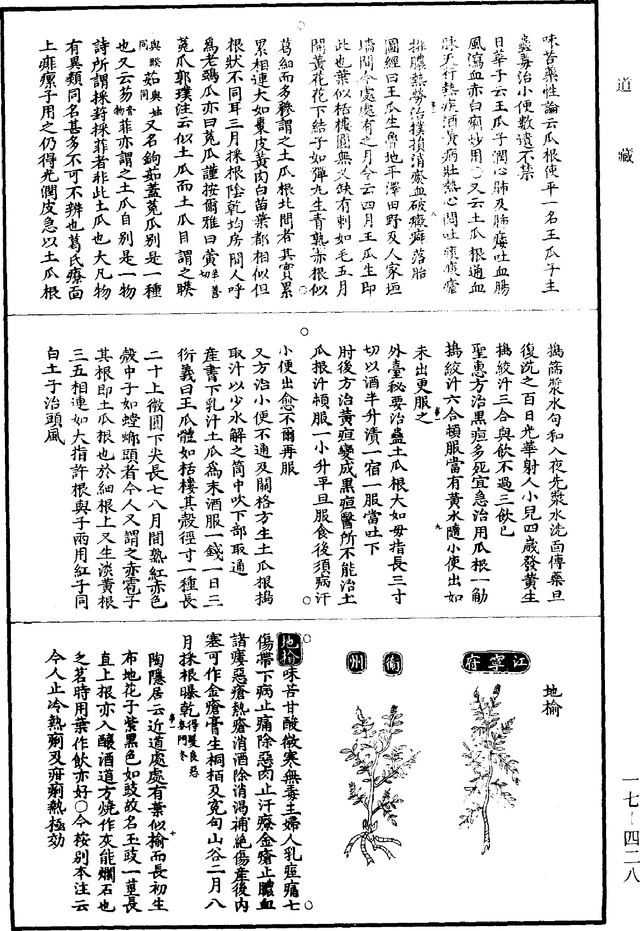 道藏
味苦藥性論云瓜根使平一名王瓜子主
蠱毒治小便數遺不禁
日華子云王瓜子潤心肺及肺痿吐血腸
風瀉血赤白痢炒用○又云土瓜根通血
脉天行熱疾酒黃病壯熱心悶吐痰痰瘧
排膿熱勞治撲損消瘀血破癥癖落胎
圖經曰王瓜生魯地平澤田野及人家垣
墻間今處處有之月令云四月王瓜生即
此也葉似栝樓圓無叉缺有刺如毛五月
開黃花花下結子如彈丸生青熟赤根似
葛細而多糝謂之土瓜根北間者其實累
累相連大如棗皮黃肉白苗葉都相似但
根狀不同耳三月採根陰乾均房間人呼
為老鵶瓜亦曰菟瓜謹按爾雅曰黃
菟瓜郭璞注云似土瓜而土瓜自謂之睽
又名鉤䒷蓋菟瓜別是一種
也又云芴菲亦謂之土瓜自別是一物
詩所謂採葑採菲者非此土瓜也大凡物
有異類同名甚多不可不辨也葛氏療面
上痱㿔子用之仍得光潤皮急以土瓜根
搗篩漿水勻和入夜先漿水洗面傅藥旦
復洗之百日光華射人小兒四歲發黃生
搗絞汁三合與飲不過三飲已
聖惠方治黑疸多死宜急治用瓜根一斤
搗絞汁六合頓服當有黃水隨小便出如
未出更服之
外臺秘要治蠱土瓜根大如毋指長三寸
切以酒半升漬一宿一服當吐下
肘後方治黃疸變成黑疸醫所不能治土
瓜根汁頓服一小升平旦服食後須病汗
小便出愈不爾再服
又方治小便不通及關格方生土瓜根搗
取汁以少水解之筒中吹下部取通
產書下乳汁土瓜為末酒服一錢一日三
衍義曰王瓜體如栝樓其殼徑寸一種長
二寸上微圓下尖長七八月間熟紅赤色
殼中子如螳螂頭者今人又謂之赤雹子
其根即土瓜根也於細根上又生淡黃根
三五相連如大指許根與子兩用紅子同
白土子治頭風
地榆
江寧府
衡州
地榆味苦甘酸微寒無毒主婦人乳痓痛七
傷帶下病止痛除惡肉止汗療金瘡止膿血
諸瘻惡瘡熱瘡消酒除消渴補絕傷産後內
塞可作金瘡膏生桐栢及冤句山谷二月八
月採根曝乾得髮良惡麥門冬
陶隱居云近道處處有葉似榆而長初生
布地花子紫黑色如豉故名玉豉一莖長
直上根亦入釀酒道方燒作灰能爛石也
乏茗時用葉作飲亦好○今按別本注云
今人止冷熱痢及疳痢熱極効
一七-四二八